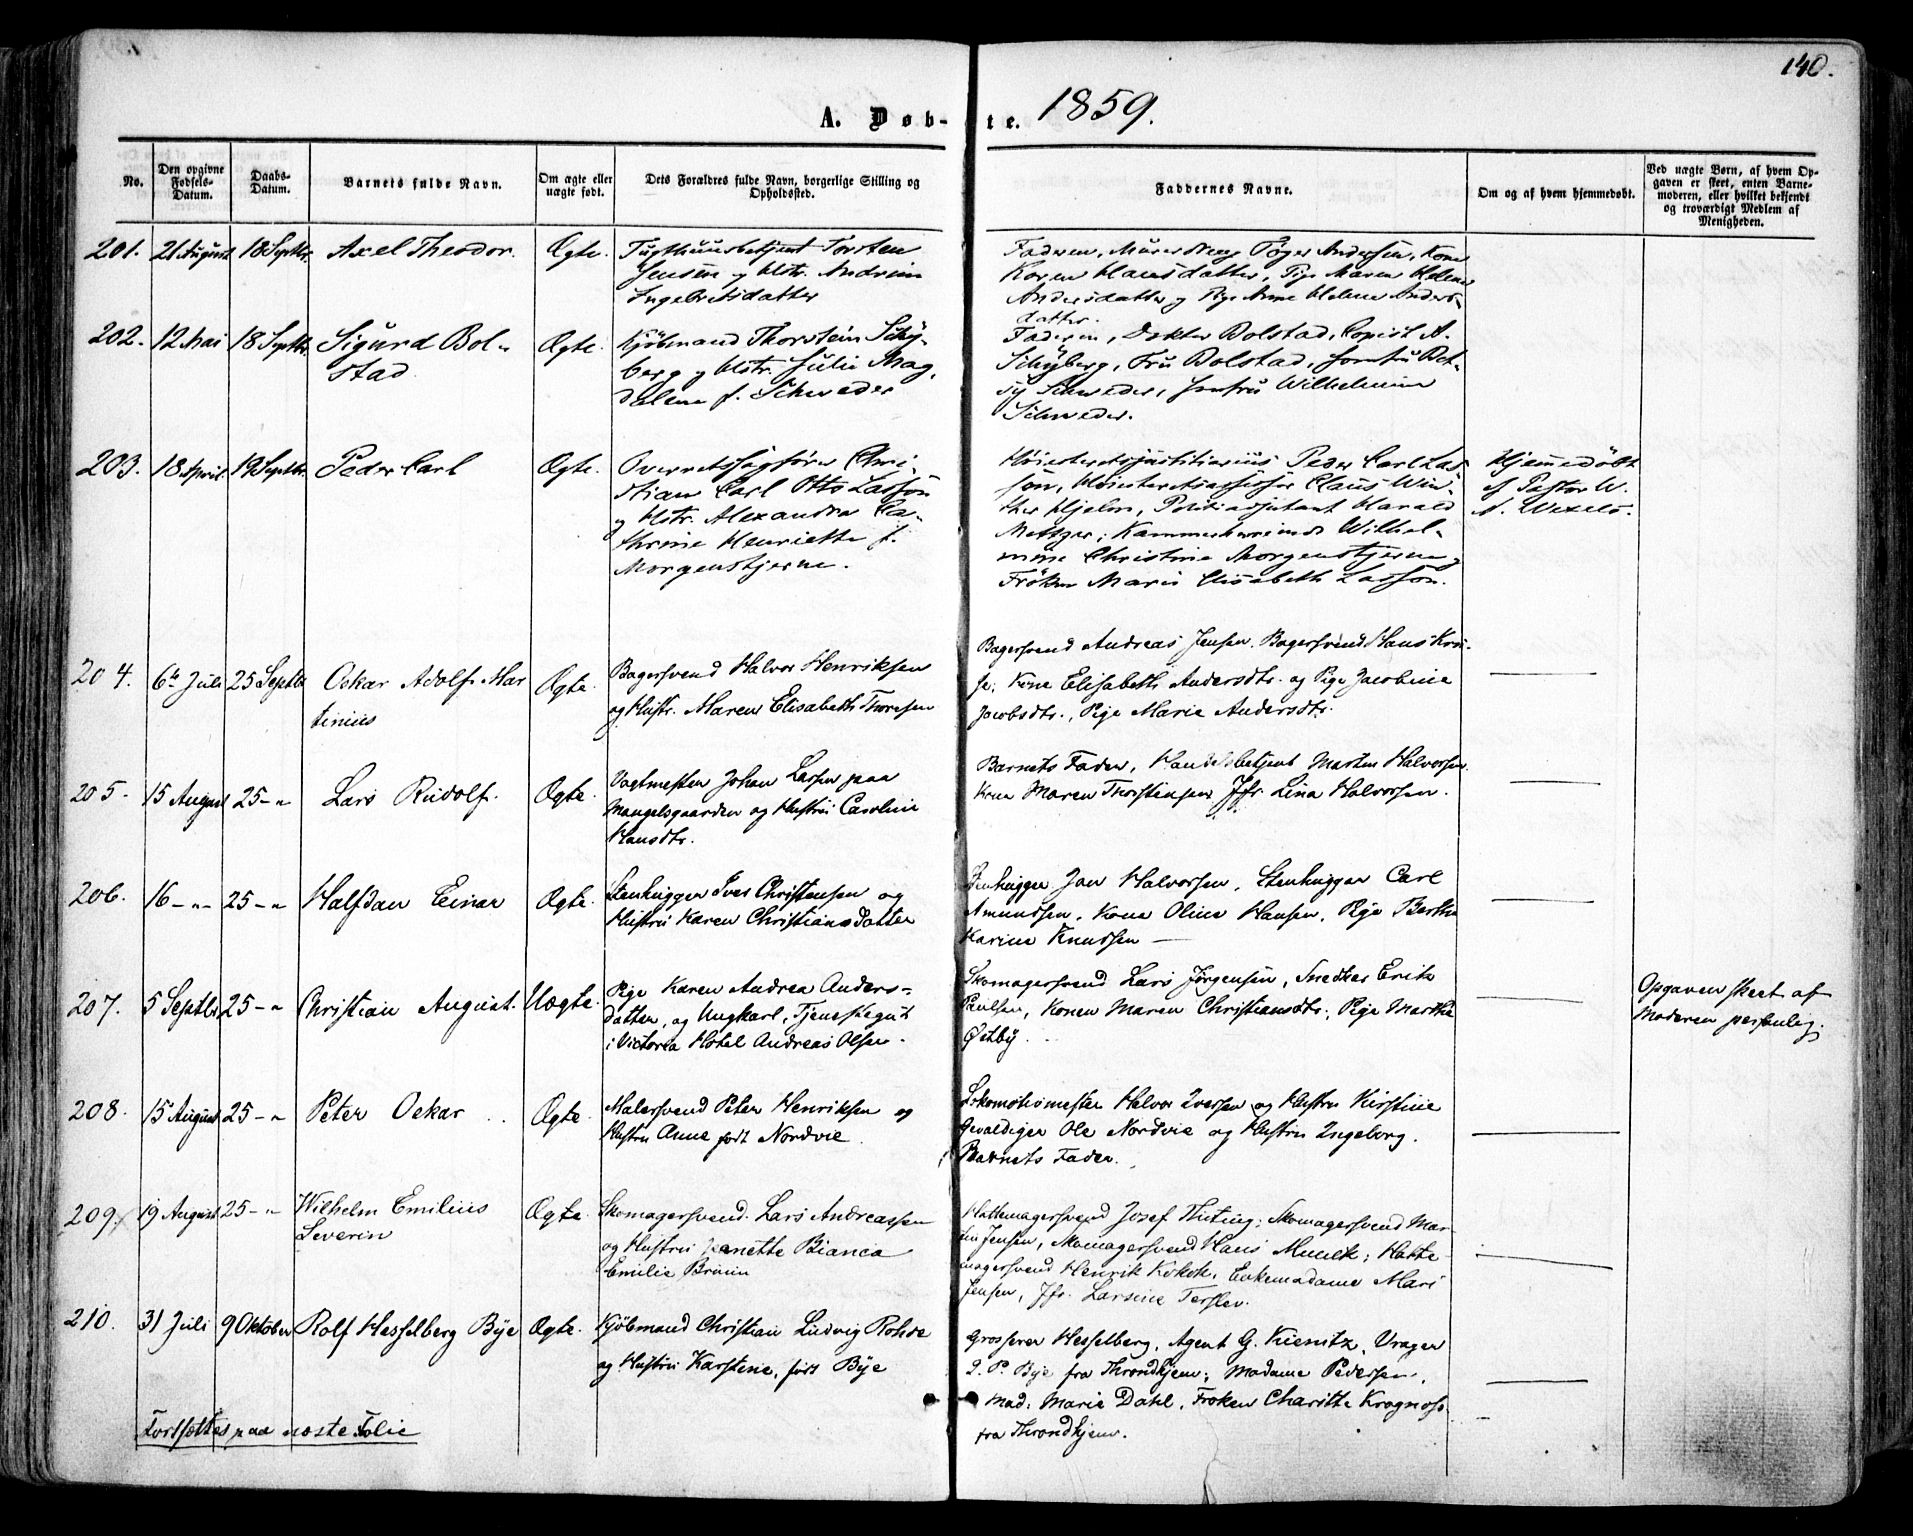 140.
A. Døb-te. 1859.
No.
Den opgivne Fødsels-Datum.
Daabs-Datum.
Barnets fulde Navn.
Om ægte eller uægte født.
Dets Forældres fulde Navn, borgerlige Stilling og Opholdssted.
Faddernes Navne.
Om og af hvem hjemmedøbt.
Ved uægte Børn, af hvem Opgaven er skeet, enten Barnemoderen, eller hvilket bekjendt og troværdigt Medlem af Menigheden.
201. 21 August 18 Septbr. Axel Theodor. Ægte.
Tugthuusbetjent Torsten
Jensen og Hstr. Andrine
Ingebretsdatter
Faderen, Murersvend Peger Andersen, Kone
Karen Hansdatter, Pige Maren Helene
Andersdatter og Pige Anne Helene Anders-
datter.
202. 12 Mai 18 Septbr. Sigurd Bol-
stad
Ægte.
Kjøbmand Thorstein Schy-
berg og Hstr. Julie Mag-
dalene f. Schweder
Faderen, Doktor Bolstad, Copist A.
Schyberg, Fru Bolstad, Jomfru Bet-
sy Schweder, Jomfru Wilhelmine
Schweder.
203. 18 April 19 Septbr. Peder Carl Ægte.
Overretssagfører Chri-
stian Carl Otto Lasson
og Hstr. Alexandra Ca-
thrine Henriette f.
Morgenstjerne.
Høiesteretsjustitiarius Peder Carl Las-
son, Høiesteretsassessor Claus Win-
ther Hjelm, Politiadjutant Harald
Mettger, Kammerherreinde Wilhel-
mine Christine Morgenstjerne,
Frøken Marie Elisabeth Lasson.
Hjemmedøbt
af Pastor W.
A. Wexels.
204. 6te Juli 25 Septbr Oskar Adolf Mar
tinius
Ægte.
Bagersvend Halvor Henriksen
og Hustr. Maren Elisabeth Thoresen
Bagersvend Andreas Jensen, Bagersvend Hans Kru-
se, Kone Elisabeth Andersdtr. og Pige Jacobine
Jacobsdtr., Pige Marie Andersdtr.
205. 15 August 25 - " Lars Rudolf. Ægte.
Vagtmester Johan Larsen paa
Mangelsgaarden og Hustru Caroline
Hansdtr.
Barnets Fader, Handelsbetjent Martin Halvorsen.
Kone Maren Thorstensen, Jfr. Lina Halvorsen.
206. 16 - " - 25 - " Halfdan Einar Ægte.
Stenhugger Iver Christensen og
Hustru Karen Christiansdatter
Stenhugger Jan Halvorsen, Stenhugger Carl
Amundsen, Kone Oline Hansen, Pige Berthe
Karine Knudsen —
207. 5 Septbr. 25 - " Christian August. Uægte.
Pige Karen Andrea Anders-
datter, og Ungkarl, Tjenestegut
i Victoria Hotel Andreas Olsen.
Skomagersvend Lars Jørgensen, Snedker Erik
Paulsen, Konen Maren Christiansdtr., Pige Marthe
Østby.
Opgaven skeet af
Moderen personlig.
208. 15 August 25 - " Peter Oskar Ægte.
Malersvend Peter Henriksen og
Hustru Anne født Nordvie.
Lokomotivmester Halvor Iversen og Hustru Kirstine
Gevaldiger Ole Nordvie og Hustru Ingeborg.
Barnets Fader.
209. 19 August 25 - " Wilhelm Emilius
Severin
Ægte.
Skomagersvend Lars Andreassen
og Hustru Jeanette Bianca
Emilie Bruun
Hattemagersvend Josef Thuting; Skomagersvend Mar-
tin Jensen, Skomagersvend Hans Munch; Hatte-
magersvend Henrik Kokok, Enkemadame Mari
Jensen, Jfr. Larsine Terslev.
210. 31 Juli 9 Oktober Rolf Hesselberg Bye Ægte.
Kjøbmand Christian Ludvig Rohde
og Hustru Karstine, født Bye
Grosserer Hesselberg, Agent G. Kienitz, Vrager
I. P. Bye fra Throndhjem; Madame Pedersen,
Mad. Marie Dahl, Frøken Charitte Krogness
fra Throndhjem.
Fortsættes paa næste Folie